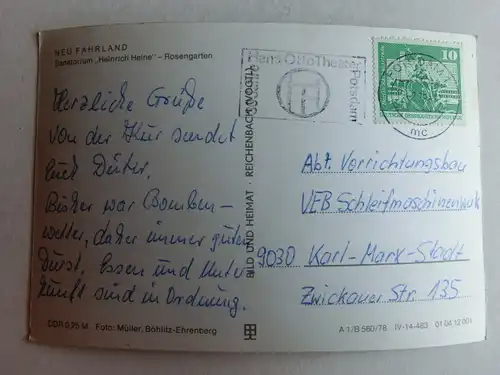 NEU FAHRLAND
Sanatorium „Heinrich Heine“ - Rosengarten
Herzliche Grüße
von der Kur sendet
Euch Dieter.
Bisher war Bomben-
wetter, daher immer guten
Durst. Essen und Unter-
kunft sind in Ordnung.
DDR 0,25 M Foto: Müller, Böhlitz-Ehrenberg
BILD UND HEIMAT · REICHENBACH (VOGTL)
Hans Otto Theater
Potsdam
10
mc
Abt. Vorrichtungsbau
VEB Schleifmaschinenwerk
9030 Karl-Marx-Stadt
Zwickauer Str. 135
A 1/B 560/78 IV-14-483 01 04 12 001